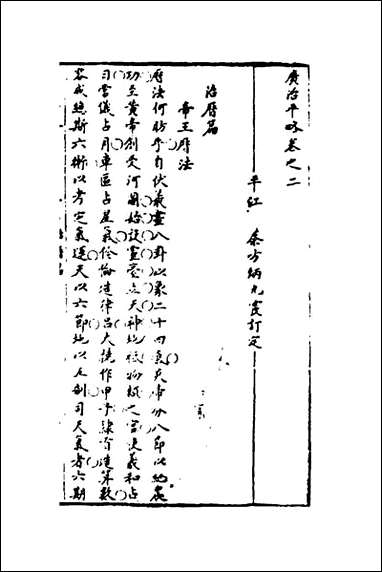 廣治平略卷之二
平江　蔡方炳九霞訂定
治曆篇
帝王曆法
曆法何昉乎自伏羲畫八卦以象二十四氣炎帝分八節以始農
功至黃帝創受河圖始設靈臺立天神地祇物類之官使羲和占
日常儀占月車區占星氣伶倫造律呂大撓作甲子隸首造算數
容成總斯六術以考定氣運天以六節地以五制司天氣者六期